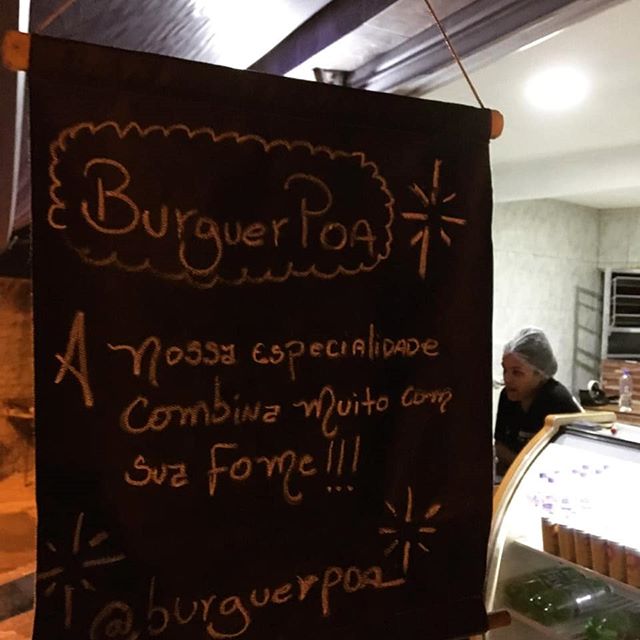 BurguerPoa
A nossa especialidade
combina muito com
sua fome!!!
@burguerpoa_